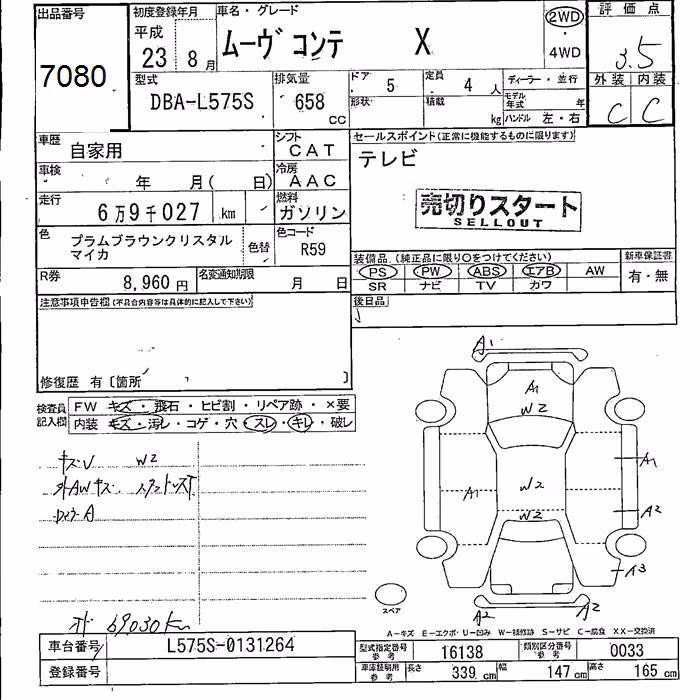 出品番号 初度登録年月 車名・グレード 評価点
平成 23年 8月 ムーヴ コンテ X 2WD・4WD 3.5
7080
型式 排気量 ドア 5 定員 4人 ディーラー・並行 外装 内装
DBA-L575S 658 CC 形状 積載 kg モデル年式 年 ハンドル 左・右 C C
車歴 自家用 シフト CAT セールスポイント(正常に機能するものに限ります)
テレビ
車検 年 月( 日) 冷房 AAC
走行 6万9千027 km 燃料 ガソリン 売切りスタート
SELLOUT
色 プラムブラウンクリスタルマイカ 色替 色コード R59
装備品(純正品に限り○をつけてください) 新車保証書
R券 8,960円 名変通知期限 月 日 PS PW ABS エアB AW 有・無
SR ナビ TV カワ
注意事項申告欄(不具合内容等は具体的に記入して下さい) 後日品
修復歴 有〔箇所 〕
検査員記入欄 FW キズ・飛石・ヒビ割・リペア跡・×要
内装 キズ・汚レ・コゲ・穴・スレ・キレ・破レ
キズU W2
外AWキズ
A
69030km
A1
A1
W2
A1
W2
A1
W2
A2
A3
スペア
A2 A2
A-キズ E-エクボ U-凹み W-補修跡 S-サビ C-腐食 XX-交換済
車台番号 L575S-0131264 型式指定番号参考 16138 類別区分番号参考 0033
登録番号 車庫証明用参考 長さ 339 cm 幅 147 cm 高さ 165 cm